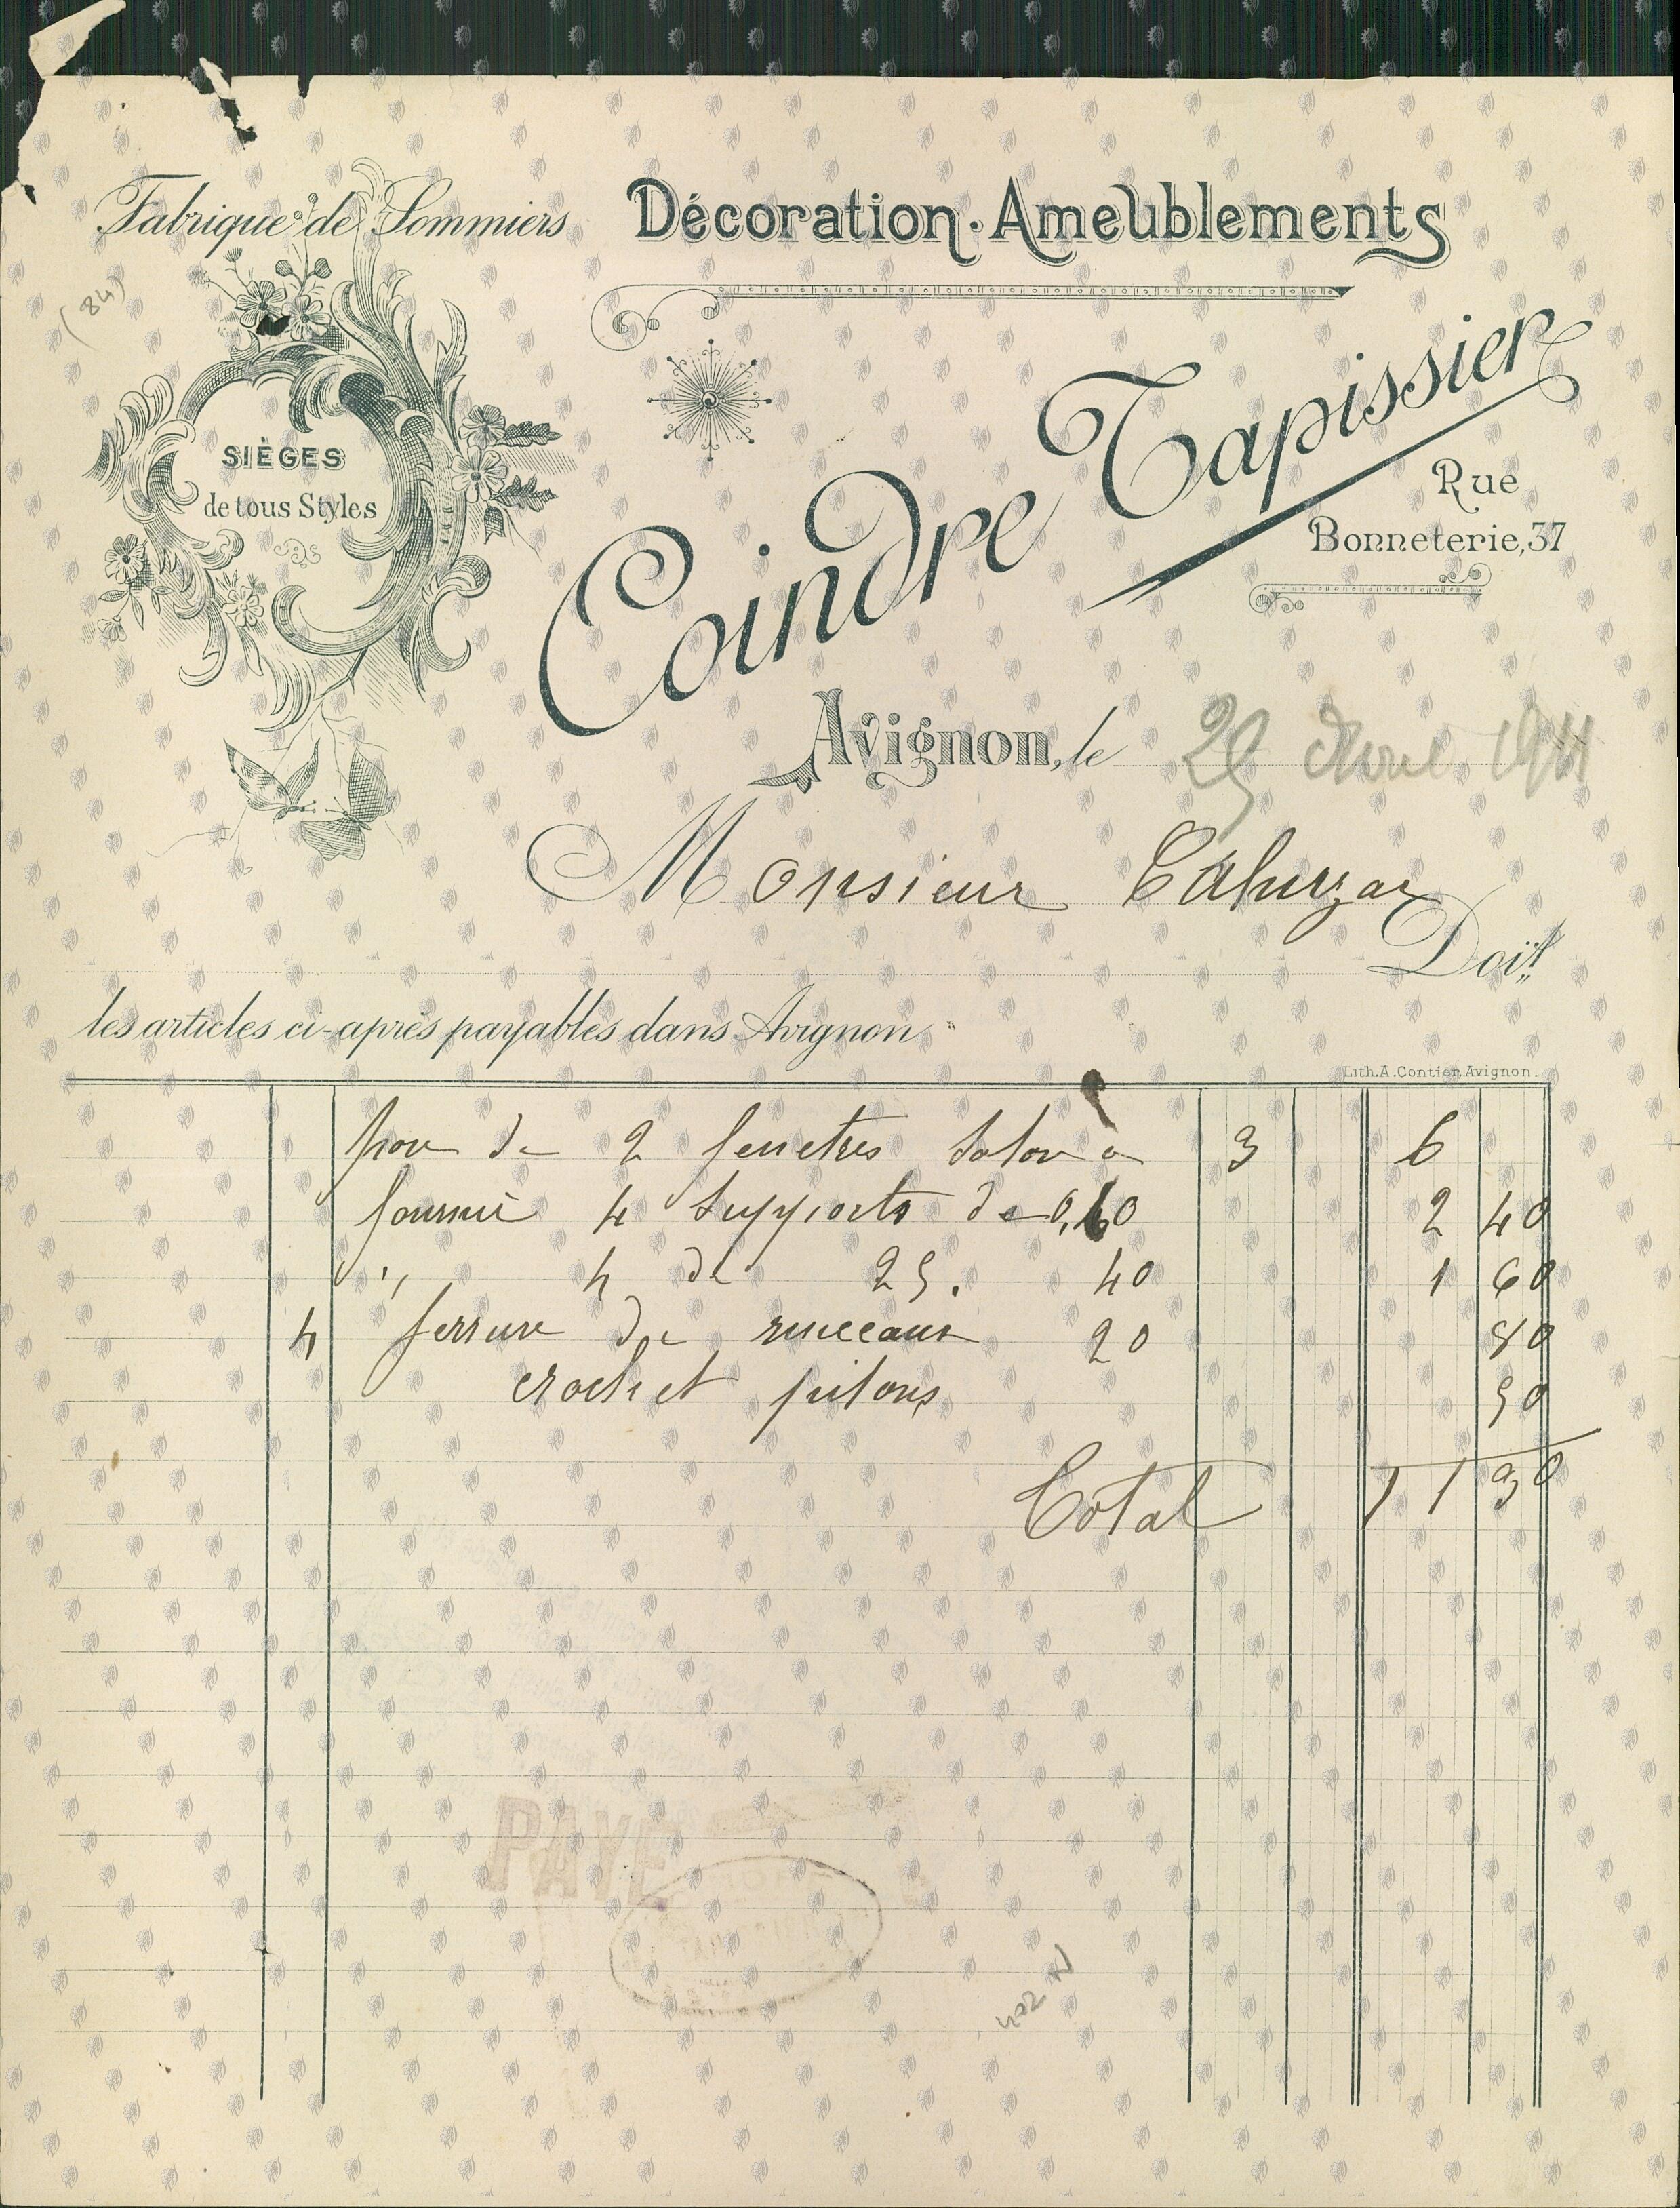 Fabrique de Sommiers
Décoration · Ameublements
(84)
SIÈGES
de tous Styles
Coindre Tapissier
Rue
Bonneterie, 37
Avignon, le 25 Avril 1911
Monsieur
Doit
les articles ci-après payables dans Avignon
Lith. A. Contier, Avignon.
de 2 fenetres Salon a 3 6
fournie 4 supports de 0,60 2 40
" 4 de 25. 40 1 60
4 ferrure de 20 80
crochet pitons 50
Total 11 30
PAYÉ